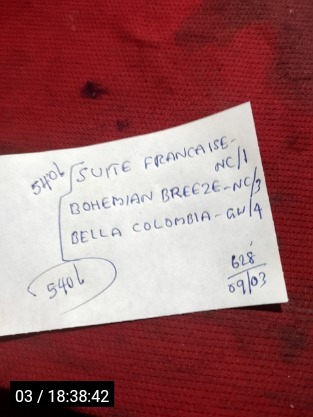 540L
SUITE FRANCAISE-
NC/1
BOHEMIAN BREEZE-NC/3
BELLA COLOMBIA-GW/4
540L
628
09/03
03 / 18:38:42